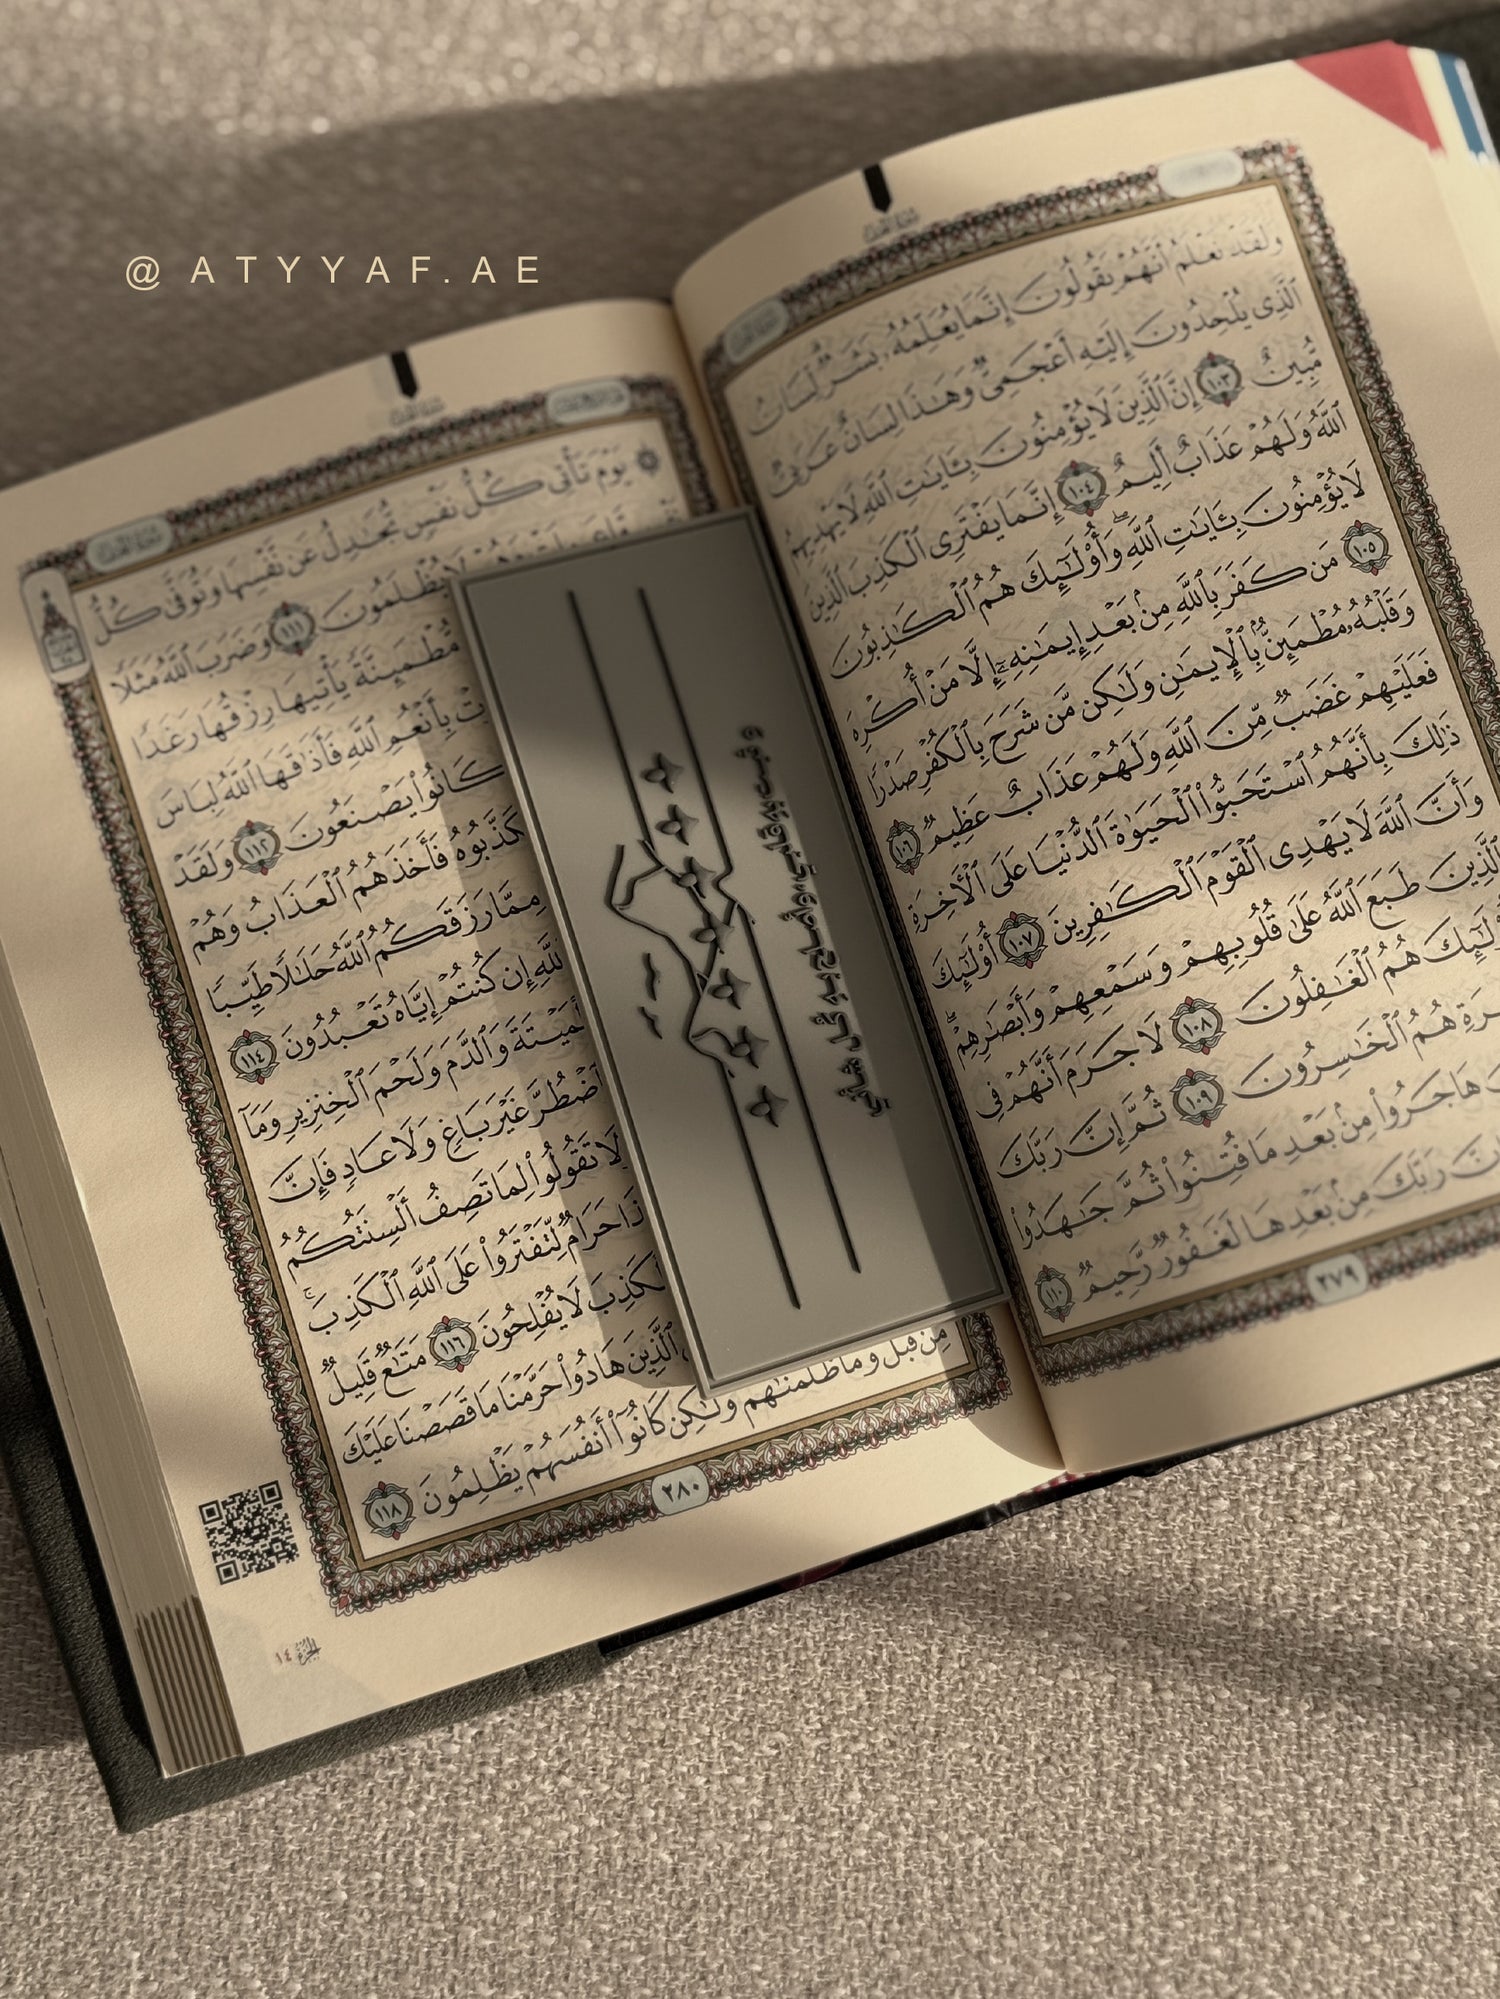 @ATYYAF.AE
وَلَقَدْ نَعْلَمُ أَنَّهُمْ يَقُولُونَ إِنَّمَا يُعَلِّمُهُۥ بَشَرٌ لِّسَانُ
ٱلَّذِى يُلْحِدُونَ إِلَيْهِ أَعْجَمِىٌّ وَهَٰذَا لِسَانٌ عَرَبِىٌّ
مُّبِينٌ ١٠٣ إِنَّ ٱلَّذِينَ لَا يُؤْمِنُونَ بِـَٔايَٰتِ ٱللَّهِ لَا يَهْدِيهِمُ
ٱللَّهُ وَلَهُمْ عَذَابٌ أَلِيمٌ ١٠٤ إِنَّمَا يَفْتَرِى ٱلْكَذِبَ ٱلَّذِينَ
لَا يُؤْمِنُونَ بِـَٔايَٰتِ ٱللَّهِ ۖ وَأُو۟لَٰٓئِكَ هُمُ ٱلْكَٰذِبُونَ
١٠٥ مَن كَفَرَ بِٱللَّهِ مِنۢ بَعْدِ إِيمَٰنِهِۦٓ إِلَّا مَنْ أُكْرِهَ
وَقَلْبُهُۥ مُطْمَئِنٌّۢ بِٱلْإِيمَٰنِ وَلَٰكِن مَّن شَرَحَ بِٱلْكُفْرِ صَدْرًا
فَعَلَيْهِمْ غَضَبٌ مِّنَ ٱللَّهِ وَلَهُمْ عَذَابٌ عَظِيمٌ ١٠٦
ذَٰلِكَ بِأَنَّهُمُ ٱسْتَحَبُّوا۟ ٱلْحَيَوٰةَ ٱلدُّنْيَا عَلَى ٱلْـَٔاخِرَةِ
وَأَنَّ ٱللَّهَ لَا يَهْدِى ٱلْقَوْمَ ٱلْكَٰفِرِينَ ١٠٧ أُو۟لَٰٓئِكَ
ٱلَّذِينَ طَبَعَ ٱللَّهُ عَلَىٰ قُلُوبِهِمْ وَسَمْعِهِمْ وَأَبْصَٰرِهِمْ ۖ
أُو۟لَٰٓئِكَ هُمُ ٱلْغَٰفِلُونَ ١٠٨ لَا جَرَمَ أَنَّهُمْ فِى
هُمُ ٱلْخَٰسِرُونَ ١٠٩ ثُمَّ إِنَّ رَبَّكَ
هَاجَرُوا۟ مِنۢ بَعْدِ مَا فُتِنُوا۟ ثُمَّ جَٰهَدُوا۟
رَبَّكَ مِنۢ بَعْدِهَا لَغَفُورٌ رَّحِيمٌ ١١٠
٢٧٩
يَوْمَ تَأْتِى كُلُّ نَفْسٍ تُجَٰدِلُ عَن نَّفْسِهَا وَتُوَفَّىٰ كُلُّ
لَا يُظْلَمُونَ ١١١ وَضَرَبَ ٱللَّهُ مَثَلًا
مُّطْمَئِنَّةً يَأْتِيهَا رِزْقُهَا رَغَدًا
بِأَنْعُمِ ٱللَّهِ فَأَذَٰقَهَا ٱللَّهُ لِبَاسَ
كَانُوا۟ يَصْنَعُونَ ١١٢ وَلَقَدْ
فَكَذَّبُوهُ فَأَخَذَهُمُ ٱلْعَذَابُ وَهُمْ
مِمَّا رَزَقَكُمُ ٱللَّهُ حَلَٰلًا طَيِّبًا
ٱللَّهِ إِن كُنتُمْ إِيَّاهُ تَعْبُدُونَ ١١٤
ٱلْمَيْتَةَ وَٱلدَّمَ وَلَحْمَ ٱلْخِنزِيرِ وَمَآ
ٱضْطُرَّ غَيْرَ بَاغٍ وَلَا عَادٍ فَإِنَّ
لَا تَقُولُوا۟ لِمَا تَصِفُ أَلْسِنَتُكُمُ
حَرَامٌ لِّتَفْتَرُوا۟ عَلَى ٱللَّهِ ٱلْكَذِبَ ۚ
ٱلْكَذِبَ لَا يُفْلِحُونَ ١١٦ مَتَٰعٌ قَلِيلٌ
ٱلَّذِينَ هَادُوا۟ حَرَّمْنَا مَا قَصَصْنَا عَلَيْكَ
مِن قَبْلُ وَمَا ظَلَمْنَٰهُمْ وَلَٰكِن كَانُوٓا۟ أَنفُسَهُمْ يَظْلِمُونَ ١١٨
٢٨٠
الجزء ١٤
وثبت به قلبي، وأصلح به كل شأني